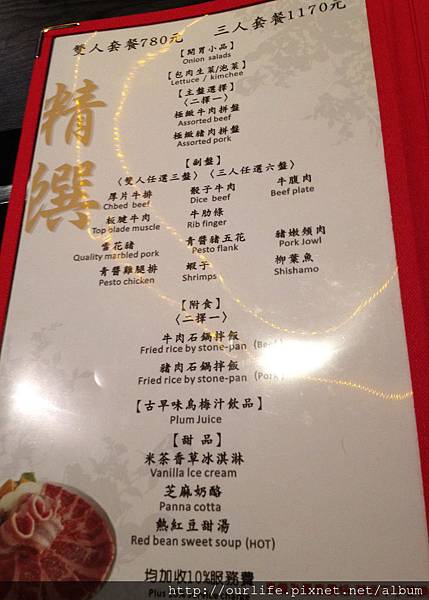 雙人套餐780元 三人套餐1170元
【開胃小品】
Onion salads
【包肉生菜/泡菜】
Lettuce / kimchee
【主盤選擇】
〈二擇一〉
極緻牛肉拼盤
Assorted beef
極緻豬肉拼盤
Assorted pork
精
饌
【副盤】
〈雙人任選三盤〉〈三人任選六盤〉
厚片牛排 骰子牛肉 牛腹肉
Chbed beef Dice beef Beef plate
板腱牛肉 牛肋條
Top blade muscle Rib finger
雪花豬 青醬豬五花 豬嫩頰肉
Quality marbled pork Pesto flank Pork Jowl
青醬雞腿排 蝦子 柳葉魚
Pesto chicken Shrimps Shishamo
【附食】
〈二擇一〉
牛肉石鍋拌飯
Fried rice by stone-pan (Beef)
豬肉石鍋拌飯
Fried rice by stone-pan (Pork)
【古早味烏梅汁飲品】
Plum Juice
【甜 品】
米茶香草冰淇淋
Vanilla Ice cream
芝麻奶酪
Panna cotta
熱紅豆甜湯
Red bean sweet soup (HOT)
均加收10%服務費
Plus
http://ourlife.pixnet.net/album